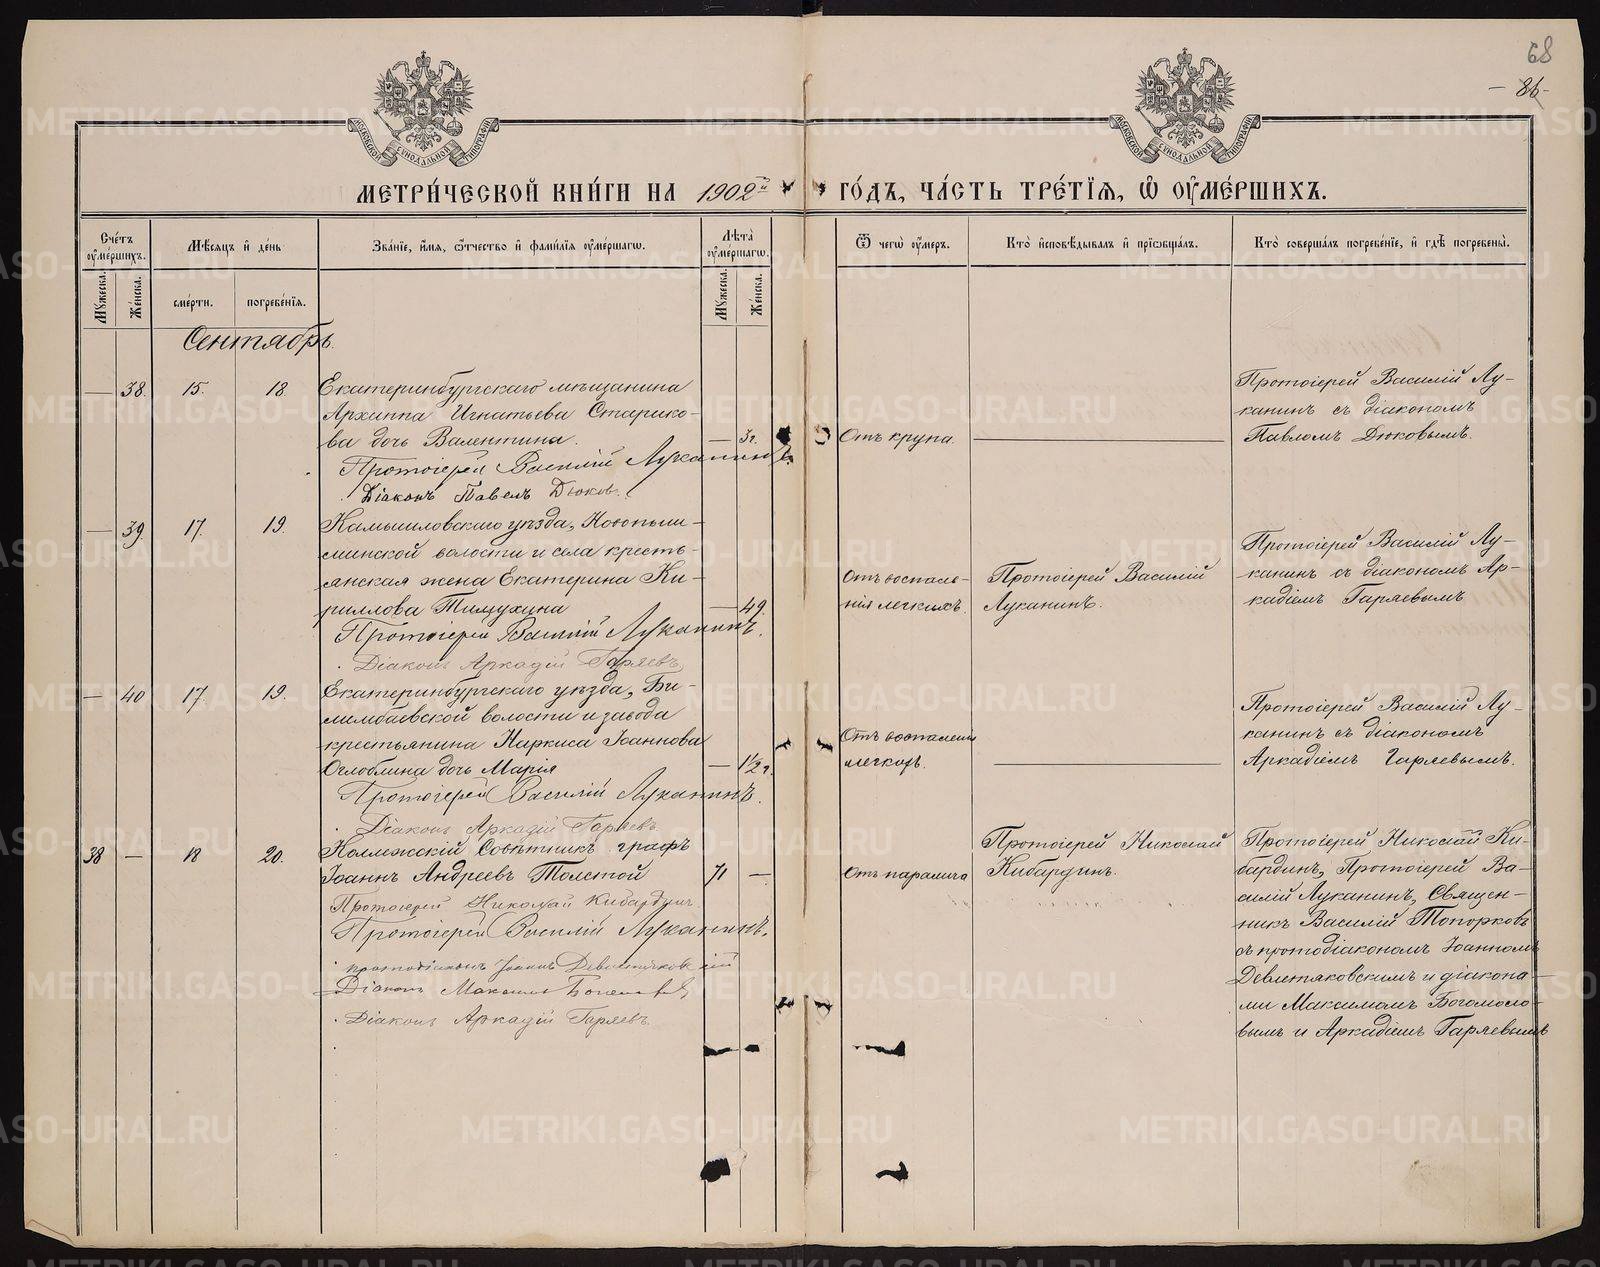 68
- 86 -
МЕТРИ́ЧЕСКОЙ КНИ́ГИ НА 1902й ГО́ДЪ, ЧА́СТЬ ТРЕ́ТІѦ, Ѡ҆ ОУ҆МЕ́РШИХЪ.
Сче́тъ оу҆ме́ршихъ.
Мѣ́сѧцъ и҆ де́нь
Зва́нїе, и҆́мѧ, ѻ҆́тчество и҆ фами́лїѧ оу҆ме́ршагѡ.
Лѣ́та оу҆ме́ршагѡ.
Ѿ чегѡ̀ оу҆́меръ.
Кто̀ и҆сповѣ́дывалъ и҆ прїѡбща́лъ.
Кто̀ соверша́лъ погребе́нїе, и҆ гдѣ̀ погребены̀.
Мꙋ́жеска.
Же́нска.
сме́рти.
погребе́нїѧ.
Мꙋ́жеска.
Же́нска.
Сентябрь.
— 38. 15. 18.
Екатеринбургскаго мѣщанина
Архиппа Игнатьева Старико-
ва дочь Валентина. — 3 г.
Протоіерей Василій Луканинъ.
Діаконъ Павелъ Дюков.
Отъ крупа.
Протоіерей Василій Лу-
канинъ съ діакономъ
Павломъ Дюковымъ.
— 39. 17. 19.
Камышловскаго уѣзда,
волости и села кресть-
янская жена Екатерина Ки-
риллова — 49.
Протоіерей Василій Луканинъ.
Діаконъ Аркадій Гаряевъ
Отъ воспале-
нія легкихъ.
Протоіерей Василій
Луканинъ.
Протоіерей Василій Лу-
канинъ съ діакономъ Ар-
кадіемъ Гаряевымъ
— 40 17. 19.
Екатеринбургскаго уѣзда, Би-
лимбаевской волости и завода
крестьянина Наркиса Іоаннова
Оглоблина дочь Марія — 1½ г.
Протоіерей Василій Луканинъ.
Діаконъ Аркадій Гаряевъ
Отъ воспаленія
легкихъ.
Протоіерей Василій Лу-
канинъ съ діакономъ
Аркадіемъ Гаряевымъ.
38 — 18 20.
Коллежскій Совѣтникъ графъ
Іоаннъ Андреевъ Толстой 71 —
Протоіерей Николай Кибардинъ
Протоіерей Василій Луканинъ.
протодіаконъ Іоаннъ Девлетяковскій
Діаконъ Максимъ Богомоловъ
Діаконъ Аркадій Гаряевъ
Отъ паралича
Протоіерей Николай
Кибардинъ.
Протоіерей Николай Ки-
бардинъ, Протоіерей Ва-
силій Луканинъ, Священ-
никъ Василій Топорковъ
съ протодіакономъ Іоанномъ
Девлетяковскимъ и діакона-
ми Максимомъ Богомоло-
вымъ и Аркадіемъ Гаряевымъ
METRIKI.GASO-URAL.RU